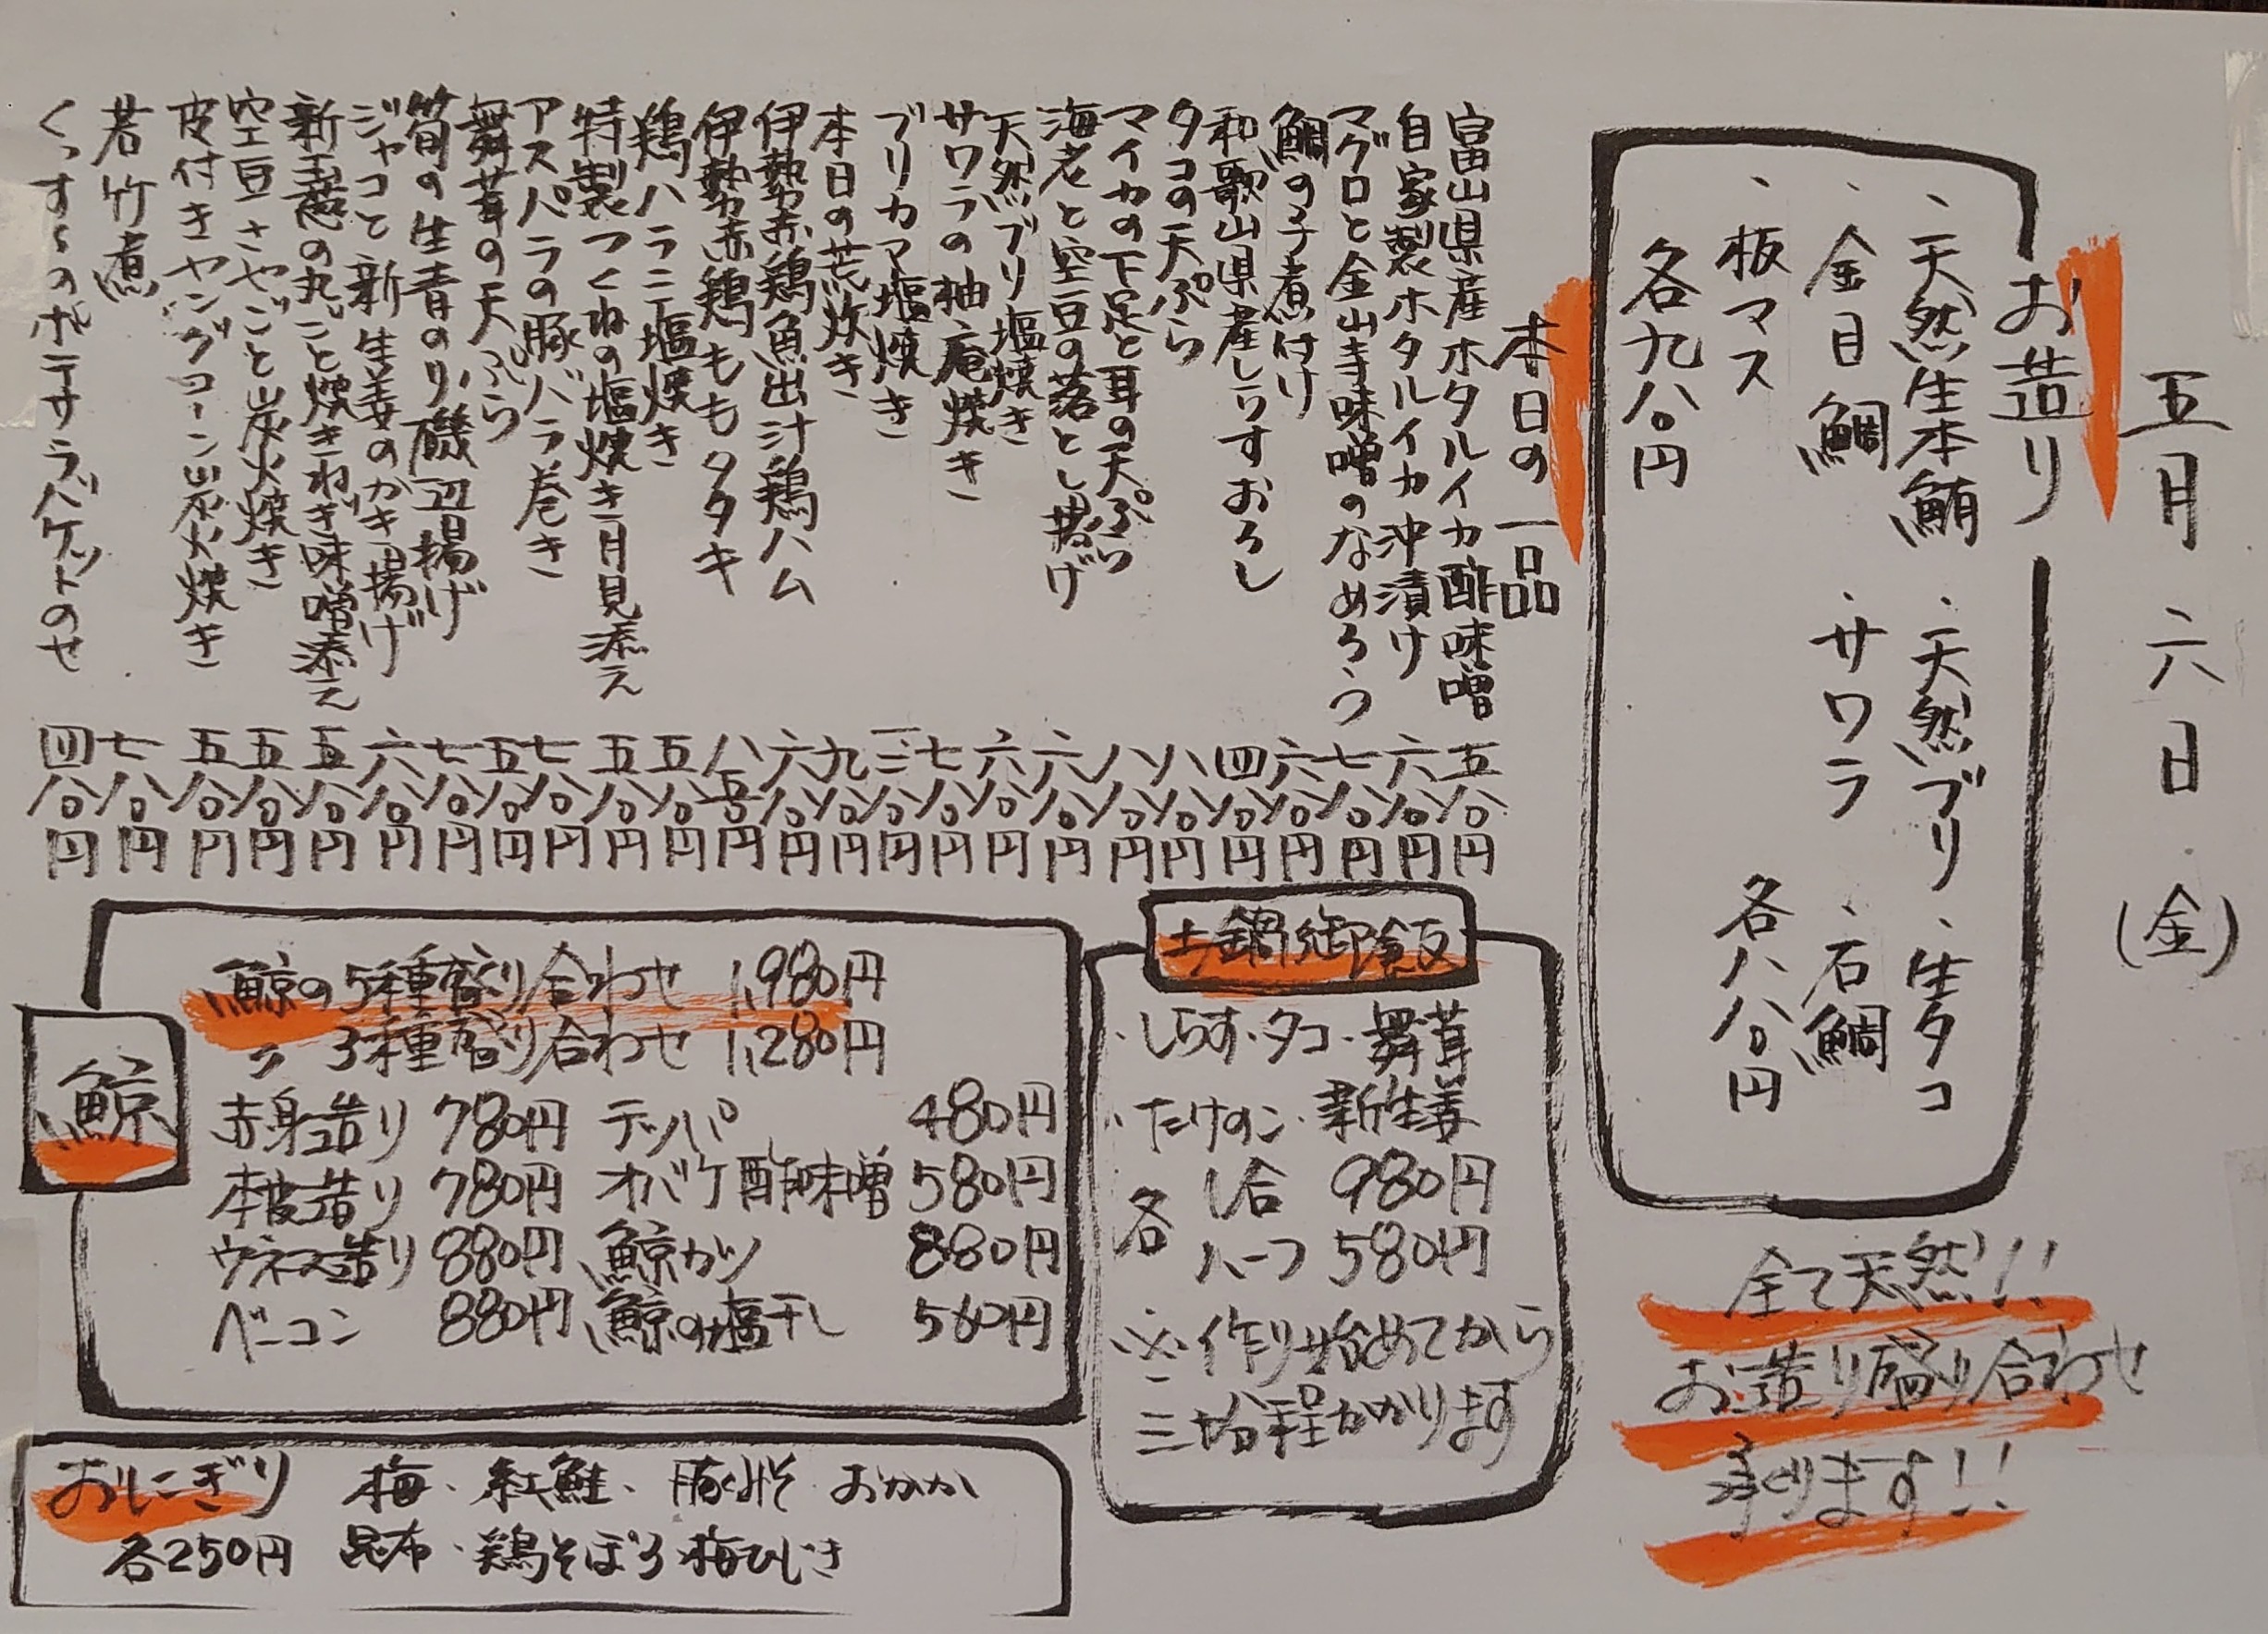 五月六日(金)
お造り
、天然生本鮪 、天然ブリ 、生タコ
、金目鯛 、サワラ 、石鯛
、板マス 各八八〇円
各九八〇円
全て天然!!
お造り盛り合わせ
承ります!!
本日の一品
富山県産ホタルイカ酢味噌 五八〇円
自家製ホタルイカ沖漬け 六八〇円
マグロと金山寺味噌のなめろう 七八〇円
鯛の子煮付け 六八〇円
和歌山県産しらすおろし 四八〇円
タコの天ぷら 八八〇円
マイカの下足と耳の天ぷら 八八〇円
海老と空豆の落とし揚げ 六八〇円
天然ブリ塩焼き 六八〇円
サワラの柚庵焼き 七八〇円
ブリカマ塩焼き 三八〇円
本日の荒炊き 九八〇円
伊勢赤鶏魚出汁鶏ハム 六八〇円
伊勢赤鶏ももタタキ 八五〇円
鶏ハラミ塩焼き 五八〇円
特製つくねの塩焼き月見添え 五八〇円
アスパラの豚バラ巻き 七八〇円
舞茸の天ぷら 五八〇円
筍の生青のり磯辺揚げ 七八〇円
ジャコと新生姜のかき揚げ 六八〇円
新玉葱の丸ごと焼きねぎ味噌添え 五八〇円
空豆さやごと炭火焼き 五八〇円
皮付きヤングコーン炭火焼き 五八〇円
若竹煮 七八〇円
くっすぅのポテサラバケットのせ 四八〇円
土鍋御飯
・しらす・タコ・舞茸
・たけのこ・新生姜
各 1合 980円
ハーフ 580円
※作り始めてから
三十分程かかります
鯨
鯨の5種盛り合わせ 1,980円
〃 3種盛り合わせ 1,280円
赤身造り 780円 テッパ 480円
本皮造り 780円 オバケ酢味噌 580円
ウネス造り 880円 鯨カツ 880円
ベーコン 880円 鯨の塩干し 560円
おにぎり 梅・紅鮭・豚みそ おかか
各250円 昆布・鶏そぼろ 梅ひじき